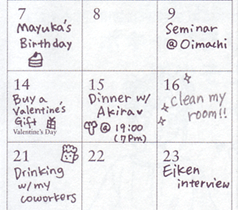 7
Mayuka's
Birthday
8
9
Seminar
@ Oimachi
14
Buy a
Valentine's
Gift
Valentine's Day
15
Dinner w/
Akira♥
@ 19:00
(7pm)
16
clean my
room!!
21
Drinking
w/my
coworkers
22
23
Eiken
interview